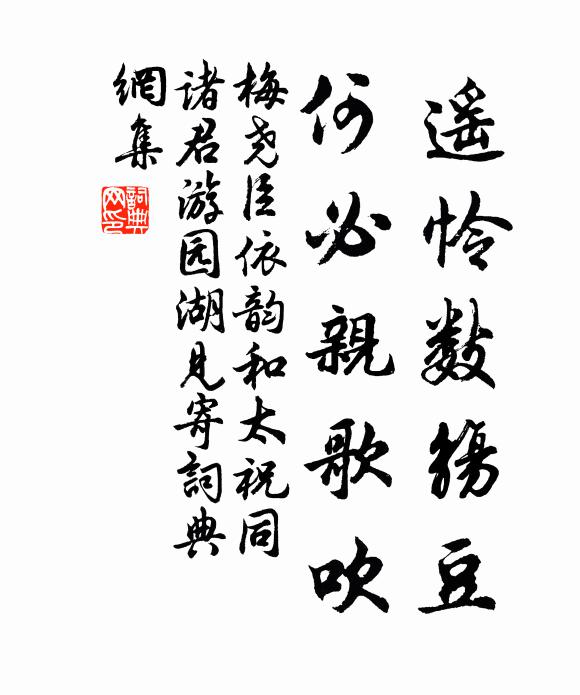 遥怜数觞豆
何必親歌吹
梅尧臣依韵和太祝同
诸君游园湖见寄詞典
網集
詞典
网印